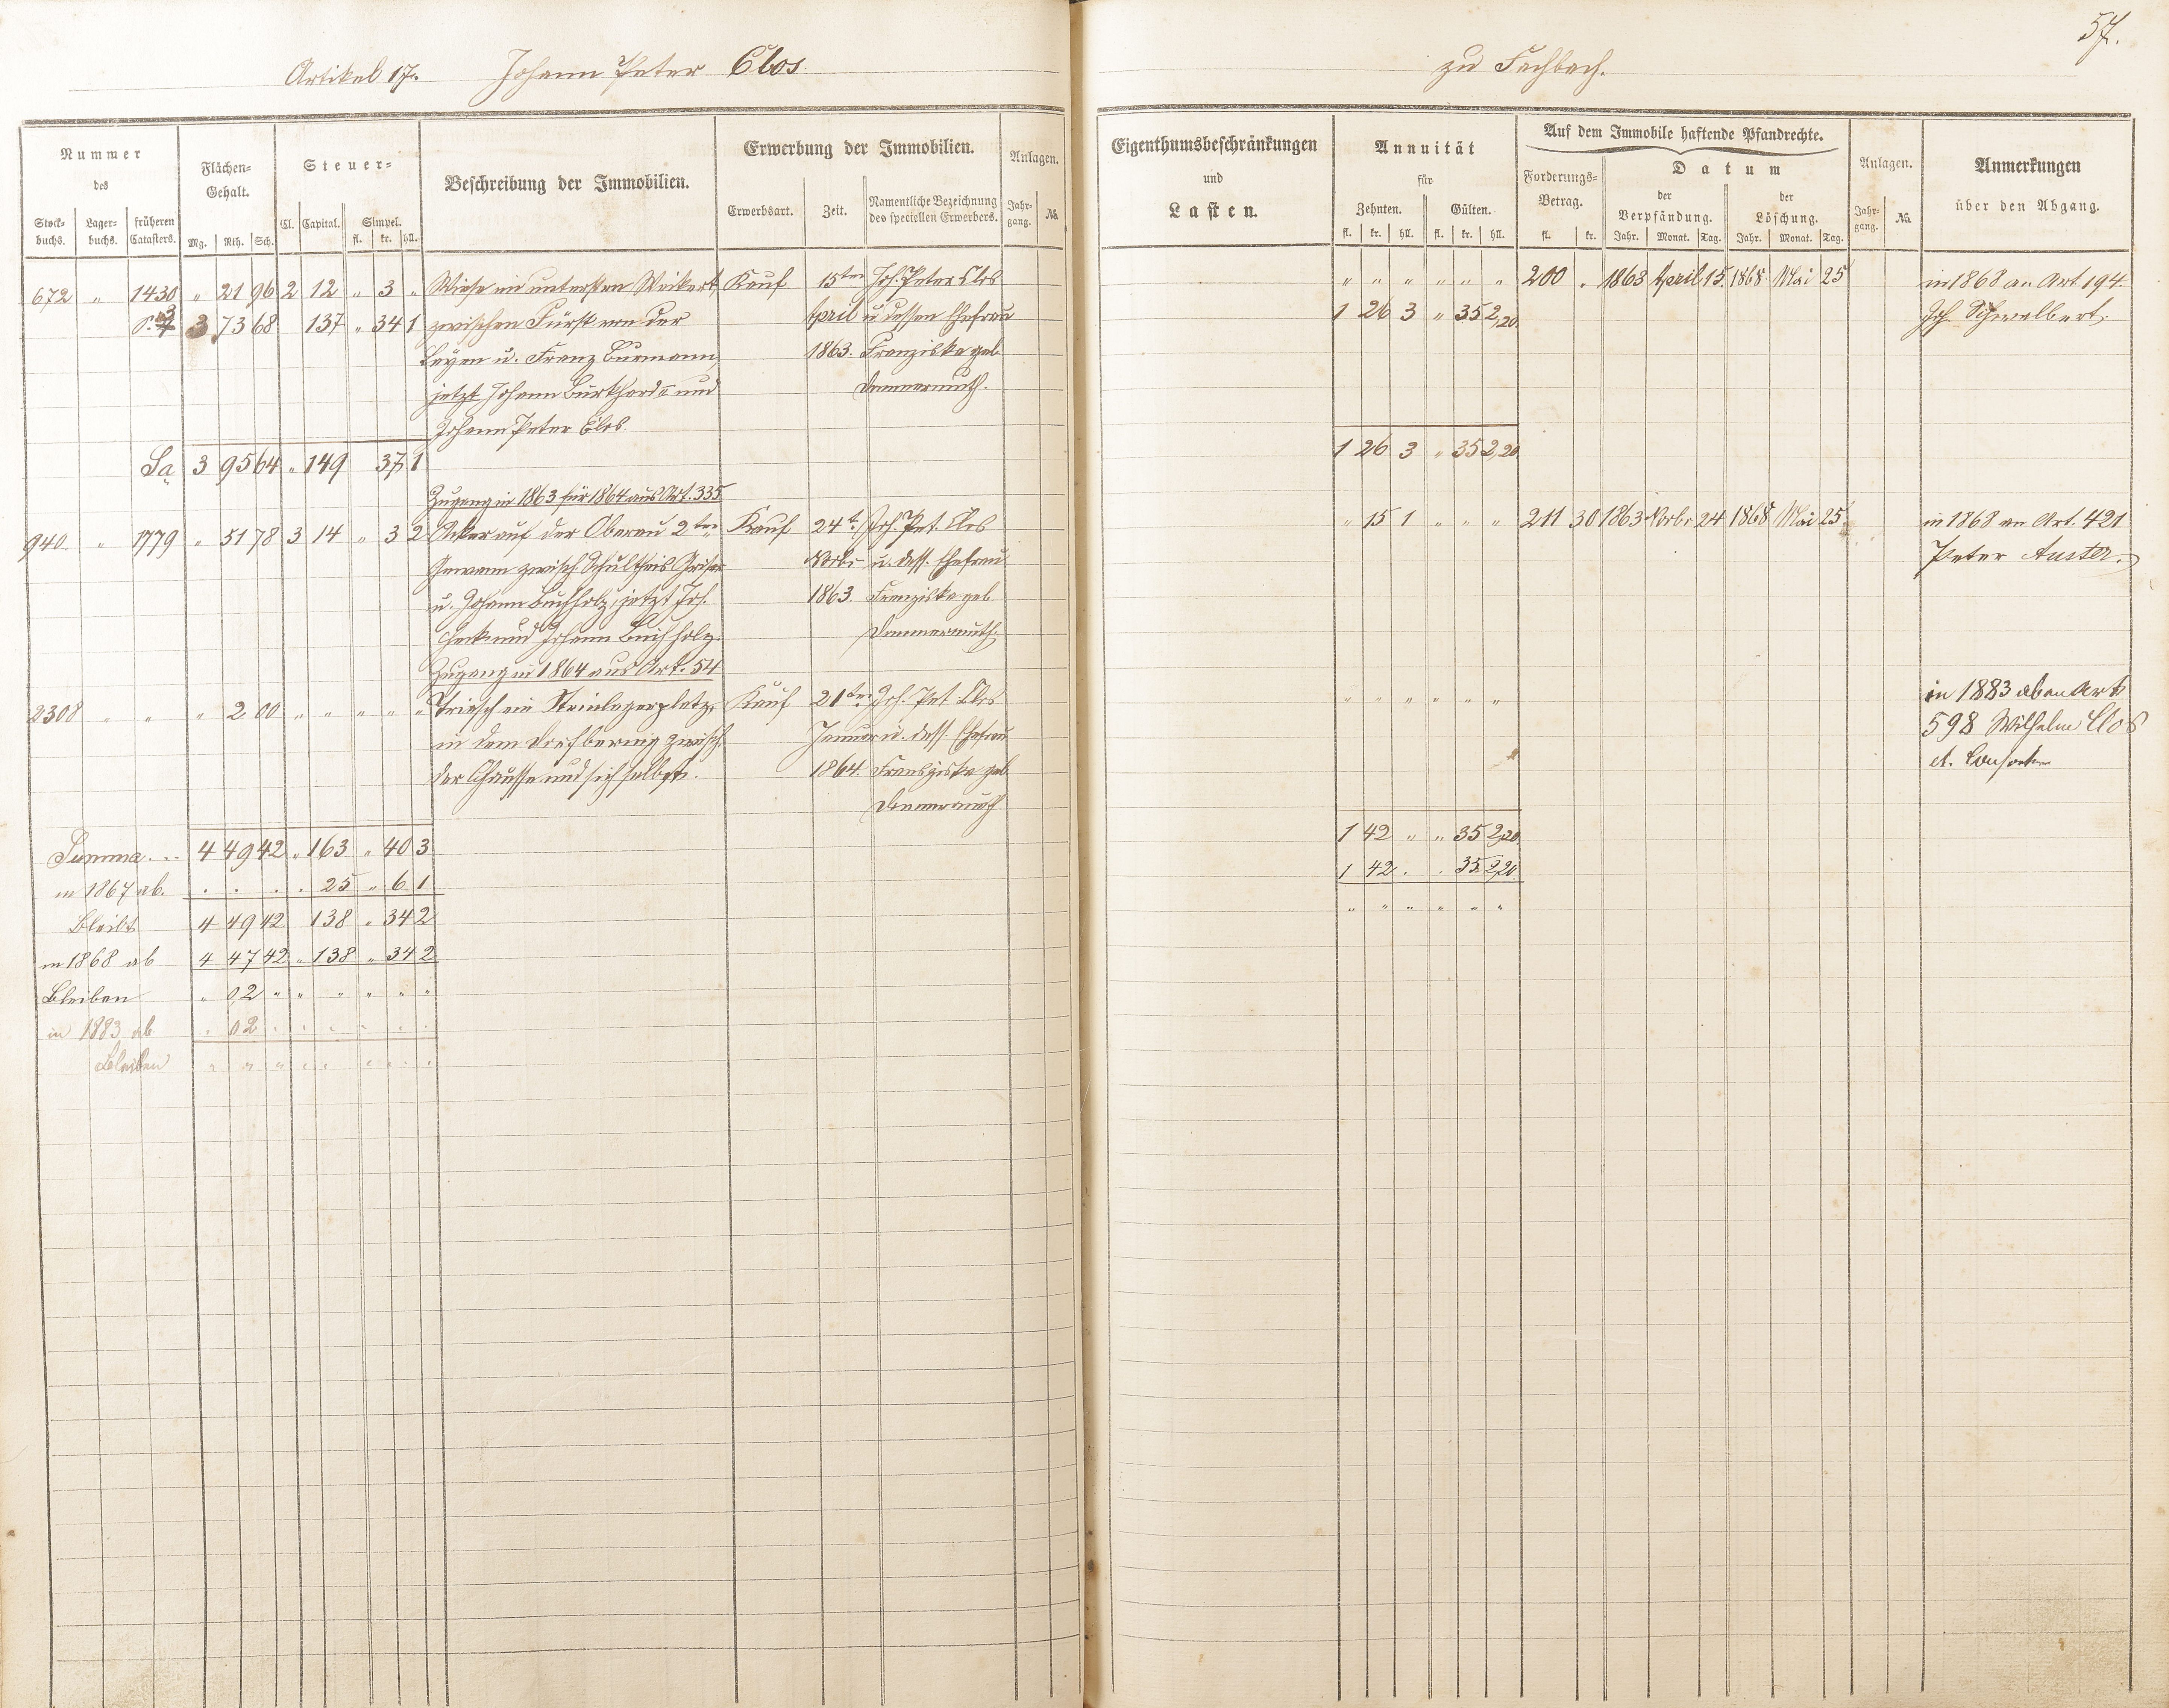 57.
Artikel 17. Johann Peter Clos zu Fachbach.
Nummer des
Stock-buchs. Lager-buchs. früheren Catasters.
Flächen-Gehalt.
Mg. Rth. Sch.
Steuer-
Cl. Capital. Simpel. fl. kr. hll.
Beschreibung der Immobilien.
Erwerbung der Immobilien.
Erwerbsart. Zeit. Namentliche Bezeichnung des speciellen Erwerbers.
Anlagen.
Jahr-gang. No.
Eigenthumsbeschränkungen und Lasten.
Annuität für
Zehnten. Gülten.
fl. kr. hll. fl. kr. hll.
Auf dem Immobile haftende Pfandrechte.
Forderungs-Betrag. fl. kr.
Datum
der Verpfändung. Jahr. Monat. Tag.
der Löschung. Jahr. Monat. Tag.
Anlagen.
Jahr-gang. No.
Anmerkungen über den Abgang.
672 " 1430 " 21 96 2 12 " 3 " Wiese im untersten Weikert, Kauf 15ten Joh. Peter Clos " " " " " " 200 " 1863 April 15. 1868 Mai 25 in 1868 an Art. 194
3 73 68 137 " 34 1 zwischen Fürst von der April u dessen Ehefrau 1 26 3 " 35 2,20 Joh. Schwalbert.
Leyen u. Franz Burmann, 1863. Franziska geb.
jetzt Johann Burkhard und Dommermuth.
Johann Peter Clos.
Sa. 3 95 64 " 149 37 1 1 26 3 " 35 2,20
Zugang in 1863 für 1864 aus Art. 335
940. " 1779 " 51 78 3 14 " 3 2 Acker auf der Oberau 2te Kauf 24t. Joh. Pet. Clos " 15 1 " " " 211 30 1863 Novbr 24 1868 Mai 25. in 1868 an Art. 421
Gewann zwisch. Schultheis Novbr u. dess. Ehefrau Peter Auster.
u. Johann Buchholz, jetzt Joh. 1863. Franziska geb
und Johann Buchholz. Dommermuth.
Zugang in 1864 aus Art. 54
2308 " " " 2 00 " " " " " Triesch ein Steinlagerplatz, Kauf 21ten Joh. Pet Clos " " " " " " in 1883 ab an Art
in dem Dorfbering zwisch. Januar u. dess. Ehefrau 598 Wilhelm Clos
der Chaussee und sich selbst. 1864. Franziska geb et. Consorten
Dommermuth
Summa... 4 49 42 " 163 " 40 3 1 42 " " 35 2,20
in 1867 ab. . . . . 25 " 6 1 1 42 . . 35 2,20
Bleibt 4 49 42 138 " 34 2 " " " " " "
in 1868 ab 4 47 42 " 138 " 34 2
Bleiben " 02 " " " " " "
in 1883 ab " 02 " " " " " "
Bleiben " " " " " " " "